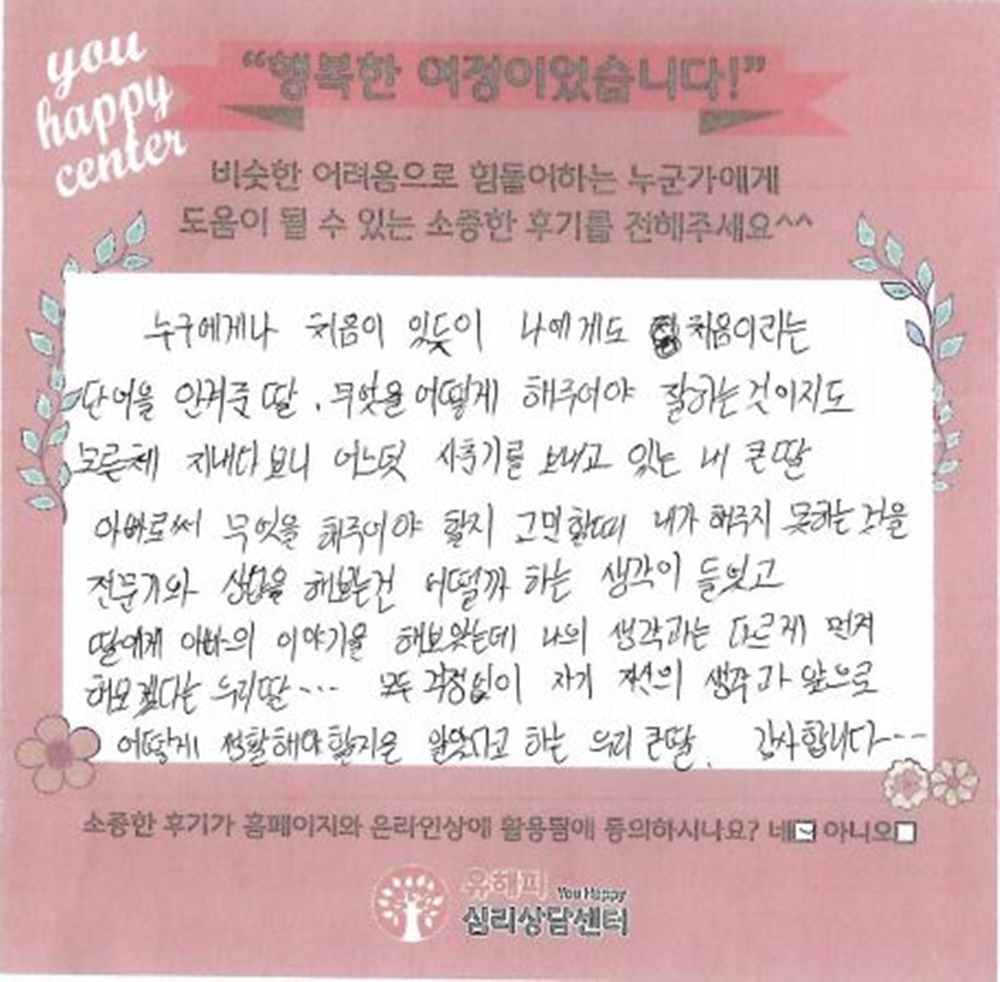 you
happy
center
“행복한 여정이었습니다!”
비슷한 어려움으로 힘들어하는 누군가에게
도움이 될 수 있는 소중한 후기를 전해주세요^^
누구에게나 처음이 있듯이 나에게도 처음이라는
단어를 안겨준 딸. 무엇을 어떻게 해주어야 잘하는것이지도
모른체 지내다보니 어느덧 사춘기를 보내고 있는 내 큰딸
아빠로써 무엇을 해주어야 할지 고민할때 내가 해주지 못하는 것을
전문가와 상담을 해보는건 어떨까 하는 생각이 들었고
딸에게 아빠의 이야기를 해보았는데 나의 생각과는 다르게 먼저
해보겠다는 우리딸... 모두 걱정없이 자기 자신의 생각과 앞으로
어떻게 생활해야할지은 알았다고 하는 우리 큰딸. 감사합니다...
소중한 후기가 홈페이지와 온라인상에 활용됨에 동의하시나요? 네☑ 아니오☐
유해피 You Happy
심리상담센터